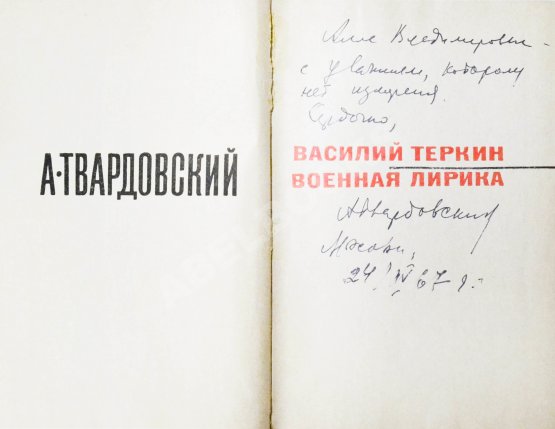 А·ТВАРДОВСКИЙ
Алле Владимировне
с уважением, которому
нет измерения.
Сердечно,
ВАСИЛИЙ ТЕРКИН
ВОЕННАЯ ЛИРИКА
АТвардовский
24 IV 67 г.